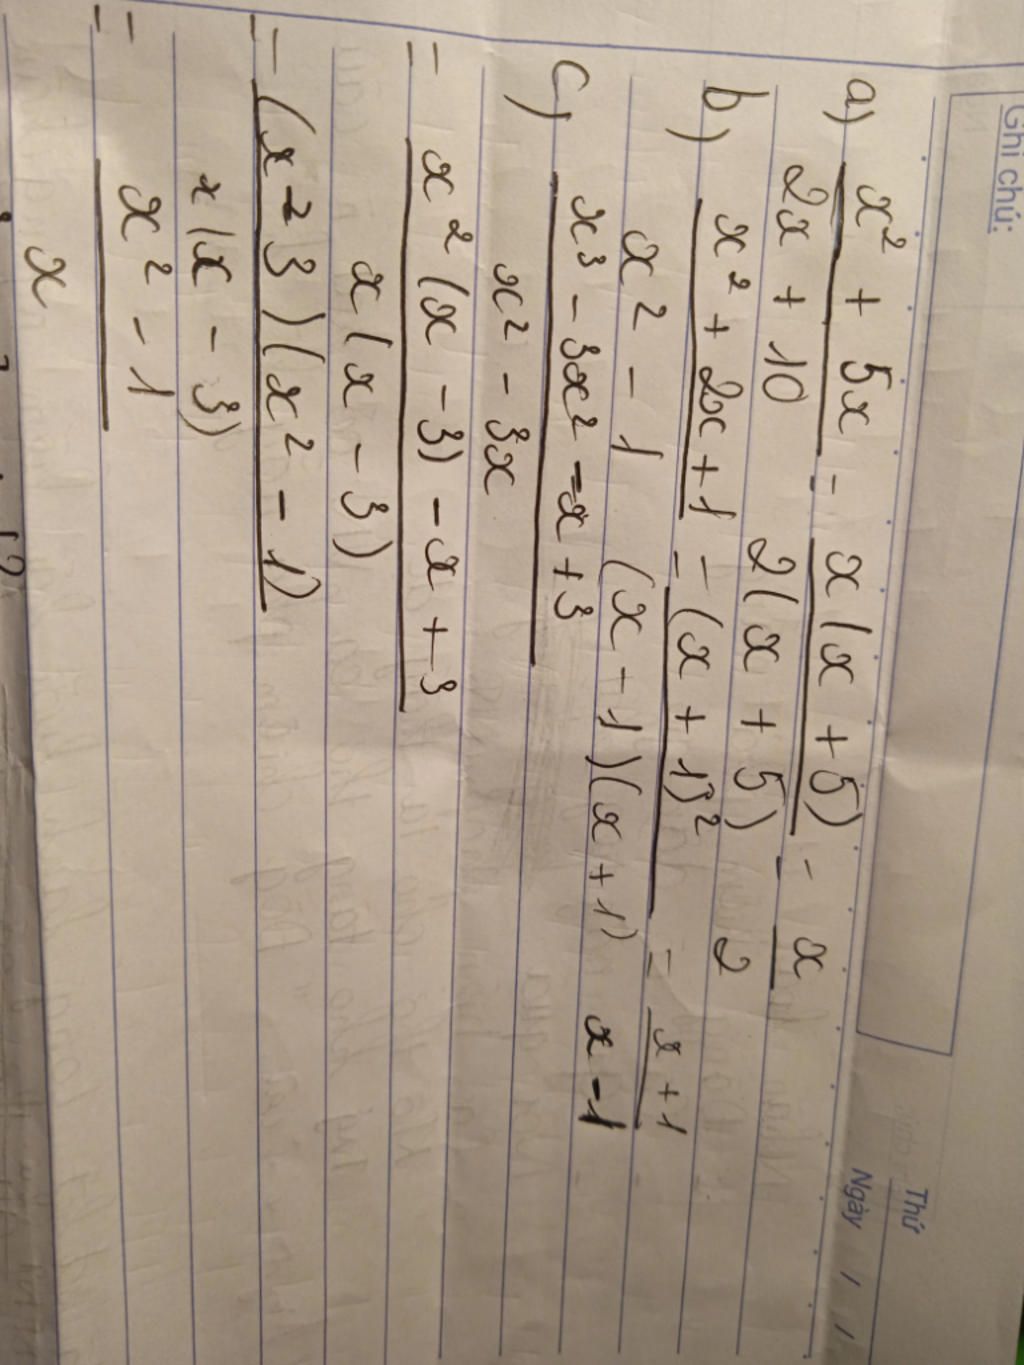 Ghi chú:
Thứ
Ngày / /
a) x² + 5x = x(x + 5) = x
2x + 10 2(x + 5) 2
b) x² + 2x + 1 = (x + 1)² = x + 1
x² - 1 (x - 1)(x + 1) x - 1
c) x³ - 3x² - x + 3
x² - 3x
= x²(x - 3) - x + 3
x(x - 3)
= (x - 3)(x² - 1)
x(x - 3)
= x² - 1
x